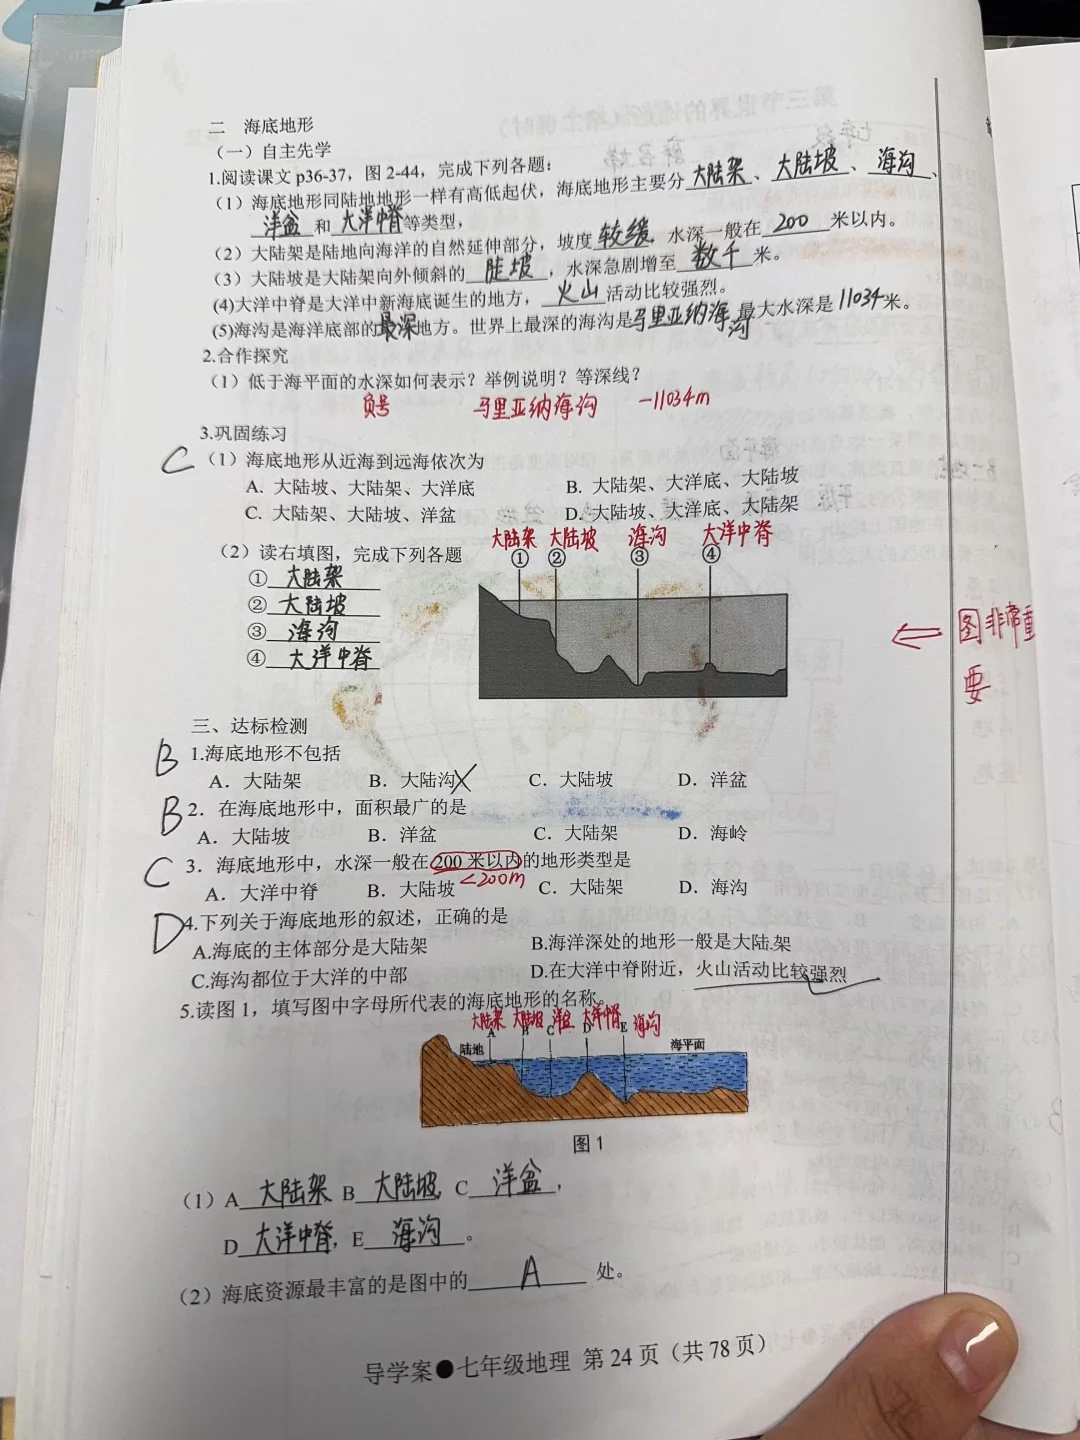 二 海底地形
（一）自主先学
1.阅读课文 p36-37，图 2-44，完成下列各题：
（1）海底地形同陆地地形一样有高低起伏，海底地形主要分 大陆架 、 大陆坡 、 海沟 、
洋盆 和 大洋中脊 等类型，
（2）大陆架是陆地向海洋的自然延伸部分，坡度 较缓，水深一般在 200 米以内。
（3）大陆坡是大陆架向外倾斜的 陡坡 ，水深急剧增至 数千 米。
(4)大洋中脊是大洋中新海底诞生的地方， 火山 活动比较强烈。
(5)海沟是海洋底部的 最深 地方。世界上最深的海沟是 马里亚纳海沟，最大水深是 11034 米。
2.合作探究
（1）低于海平面的水深如何表示？举例说明？等深线？
负号 马里亚纳海沟 -11034m
3.巩固练习
C （1）海底地形从近海到远海依次为
A. 大陆坡、大陆架、大洋底 B. 大陆架、大洋底、大陆坡
C. 大陆架、大陆坡、洋盆 D. 大陆坡、大洋底、大陆架
大陆架 大陆坡 海沟 大洋中脊
（2）读右填图，完成下列各题 ① ② ③ ④
① 大陆架
② 大陆坡
③ 海沟
④ 大洋中脊
图非常重
要
三、达标检测
B 1.海底地形不包括
A. 大陆架 B. 大陆沟 C. 大陆坡 D. 洋盆
B 2. 在海底地形中，面积最广的是
A. 大陆坡 B. 洋盆 C. 大陆架 D. 海岭
C 3. 海底地形中，水深一般在 200 米以内的地形类型是
<200m
A. 大洋中脊 B. 大陆坡 C. 大陆架 D. 海沟
D 4.下列关于海底地形的叙述，正确的是
A.海底的主体部分是大陆架 B.海洋深处的地形一般是大陆.架
C.海沟都位于大洋的中部 D.在大洋中脊附近，火山活动比较强烈
5.读图 1，填写图中字母所代表的海底地形的名称。
大陆架 大陆坡 洋盆 大洋中脊 海沟
A B C D E
陆地 海平面
图 1
（1）A 大陆架、B 大陆坡，C 洋盆 ，
D 大洋中脊，E 海沟 。
（2）海底资源最丰富的是图中的 A 处。
导学案●七年级地理 第 24 页（共 78 页）